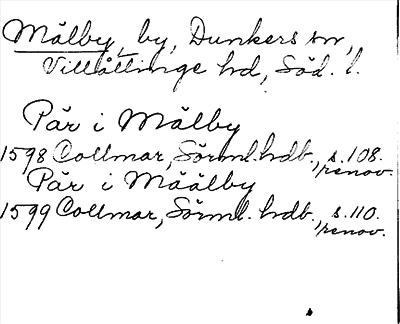 Målby, by, Dunkers sn,
Villåttinge hd, Söd. l.
Pär i Målby
1598 Collmar, Sörml. hdb., s. 108.
renov.
Pär i Måålby
1599 Collmar, Sörml. hdb., s. 110.
renov.